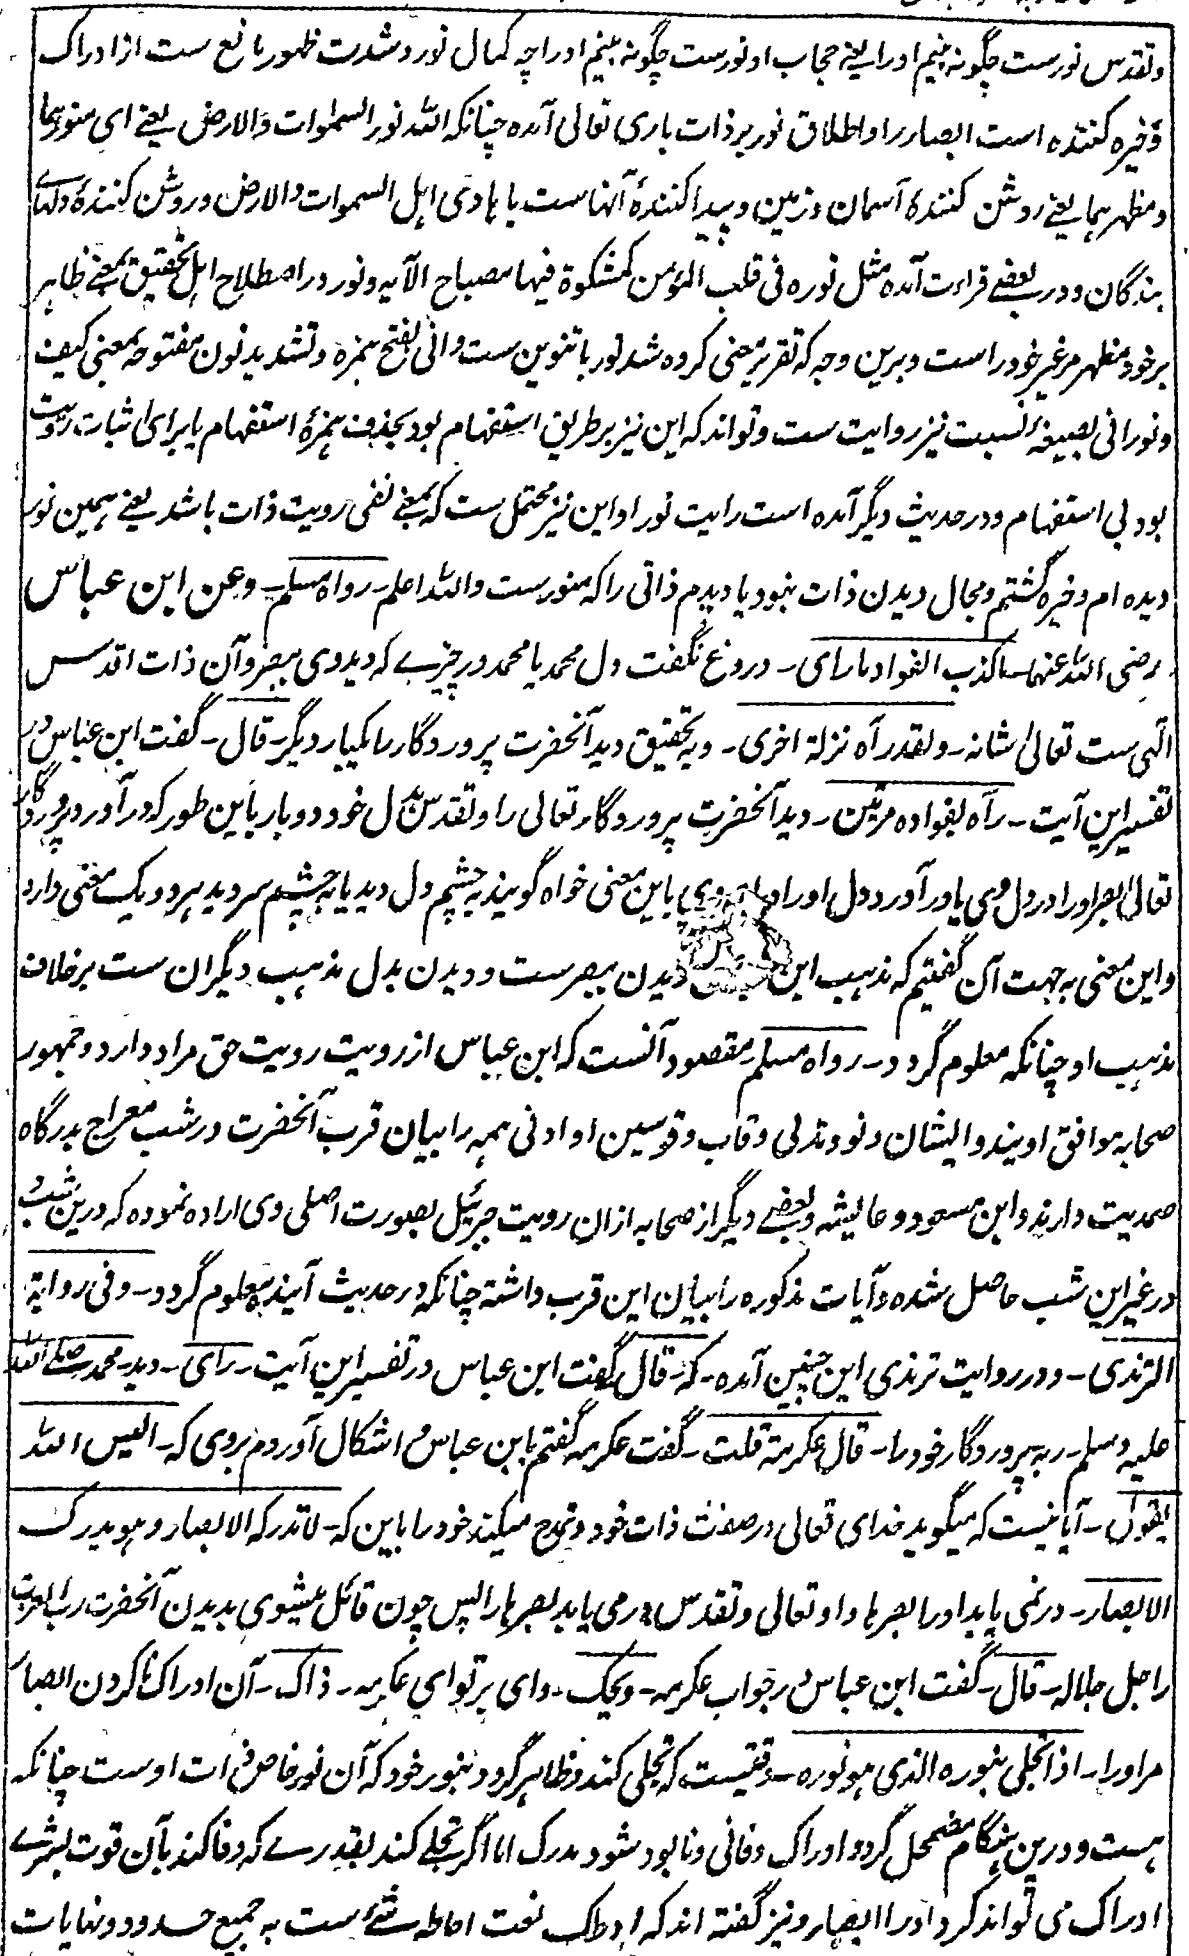 وتقدس نورست چگونه بینم اورا یعنے حجاب او نورست چگونه بینم اورا چه کمال نور و شدت ظهور مانع ست از ادراک
و خیره کننده است ابصار را و اطلاق نور بر ذات باری تعالی آمده چنانکه الله نور السموات والارض یعنے ای منورهما
و مظهرهما یعنے روشن کنندهٔ آسمان و زمین و پیدا کنندهٔ آنهاست یا هادی اهل السموات والارض و روشن کنندهٔ دلهاے
بندگان و در بعضے قراءت آمده مثل نوره فی قلب المؤمن کمشکوة فیها مصباح الآیه و نور در اصطلاح اهل تحقیق بمعنے ظاهر
بر خود مظهر مر غیر خود را است و برین وجه که تقریر معنی کرده شد نور با تنوین ست و انی بفتح همزه و تشدید نون مفتوحه بمعنی کیف
و نورانی بصیغهٔ نسبت نیز روایت ست و تواند که این نیز بر طریق استفهام بود بحذف همزهٔ استفهام یا برای اثبات رویت
بود بی استفهام و در حدیث دیگر آمده است رایت نورا و این نیز محتمل ست که بمعنے نفی رویت ذات باشد یعنے همین نور
دیده ام و خیره گشتم و مجال دیدن ذات نبود یا دیدم ذاتی را که منورست والله اعلم ـ رواه مسلم ـ وعن ابن عباس
رضی الله عنهما ـ ما کذب الفواد ما رای ـ دروغ نگفت دل محمد یا محمد در چیزے که دید وی ببصر و آن ذات اقدس
الهی ست تعالی شانه ـ ولقد رآه نزلة اخری ـ و به تحقیق دید آنحضرت پروردگار را یکبار دیگر ـ قال ـ گفت ابن عباس در
تفسیر این آیت ـ رآه بفواده مرتین ـ دید آنحضرت پروردگار تعالی را و تقدس بدل خود دو بار باین طور که در آورد پروردگار
تعالی بصر اورا در دل وی یا در آورد دل اورا در وی باین معنی خواه گویند به چشم دل دید یا به چشم سر دید هر دو یک معنی دارد
و این معنی به جهت آن گفتیم که مذهب ابن دیدن ببصر ست و دیدن بدل مذهب دیگران ست برخلاف
مذهب او چنانکه معلوم گردد ـ رواه مسلم ـ مقصود آنست که ابن عباس از رویت رویت حق مراد دارد و جمهور
صحابه موافق اویند و ایشان دنو و تدلی و قاب و قوسین او ادنی همه را بیان قرب آنحضرت در شب معراج بدرگاه
صمدیت دارند و ابن مسعود و عایشه و بعضے دیگر از صحابه ازان رویت جبرئیل بصورت اصلی وی اراده نموده که درین شب و
در غیر این شب حاصل شده و آیات مذکوره را بیان این قرب داشته چنانکه در حدیث آینده معلوم گردد ـ وفی روایة
الترمذی ـ و در روایت ترمذی این چنین آمده ـ که ـ قال گفت ابن عباس در تفسیر این آیت ـ رای ـ دید ـ محمد صلی الله
علیه وسلم ـ ربه پروردگار خود را ـ قال عکرمة قلت ـ گفت عکرمه گفتم با ابن عباس و اشکال آوردم بروی که ـ الیس الله
یقول ـ آیا نیست که میگوید خدای تعالی در صفت ذات خود و تمدح میکند خود را باین که ـ لا تدرکه الابصار وهو یدرک
الابصار ـ در نمی یابد اورا بصرها و او تعالی و تقدس در می یابد بصرها را پس چون قائل میشوی بدیدن آنحضرت رب العزت
را جل جلاله ـ قال ـ گفت ابن عباس در جواب عکرمه ـ ویحک ـ وای بر تو ای عکرمه ـ ذاک ـ آن ادراک ناکردن ابصار
مر اورا ـ اذا تجلی بنوره الذی هو نوره ـ وقتیست که تجلی کند و ظاهر گردد بنور خود که آن نور خاص ذات اوست چنانکه
هست و درین هنگام مضمحل گردد ادراک و فانی و نابود شود مدرک اما اگر تجلے کند بقدرے که وفا کند بآن قوت بشرے
ادراک می تواند کرد اورا ابصار و نیز گفته اند که ادراک نعت احاطه شئے ست به جمیع حدود و نهایات